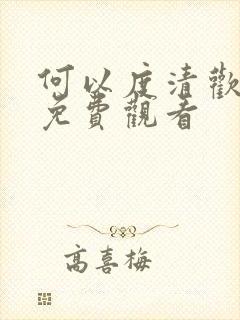 何以度清歡
免費觀看
高喜梅